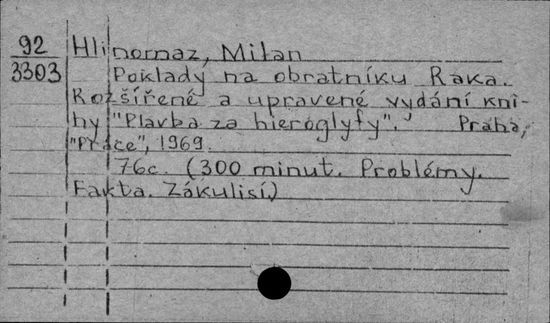 92
3303
Hlinomaz, Milan
Poklady na obratníku Raka.
Rozšířené a upravené vydání kni-
hy "Plavba za hieroglyfy". Praha,
"Práce", 1969.
76c. (300 minut. Problémy.
Fakta. Zákulisí)